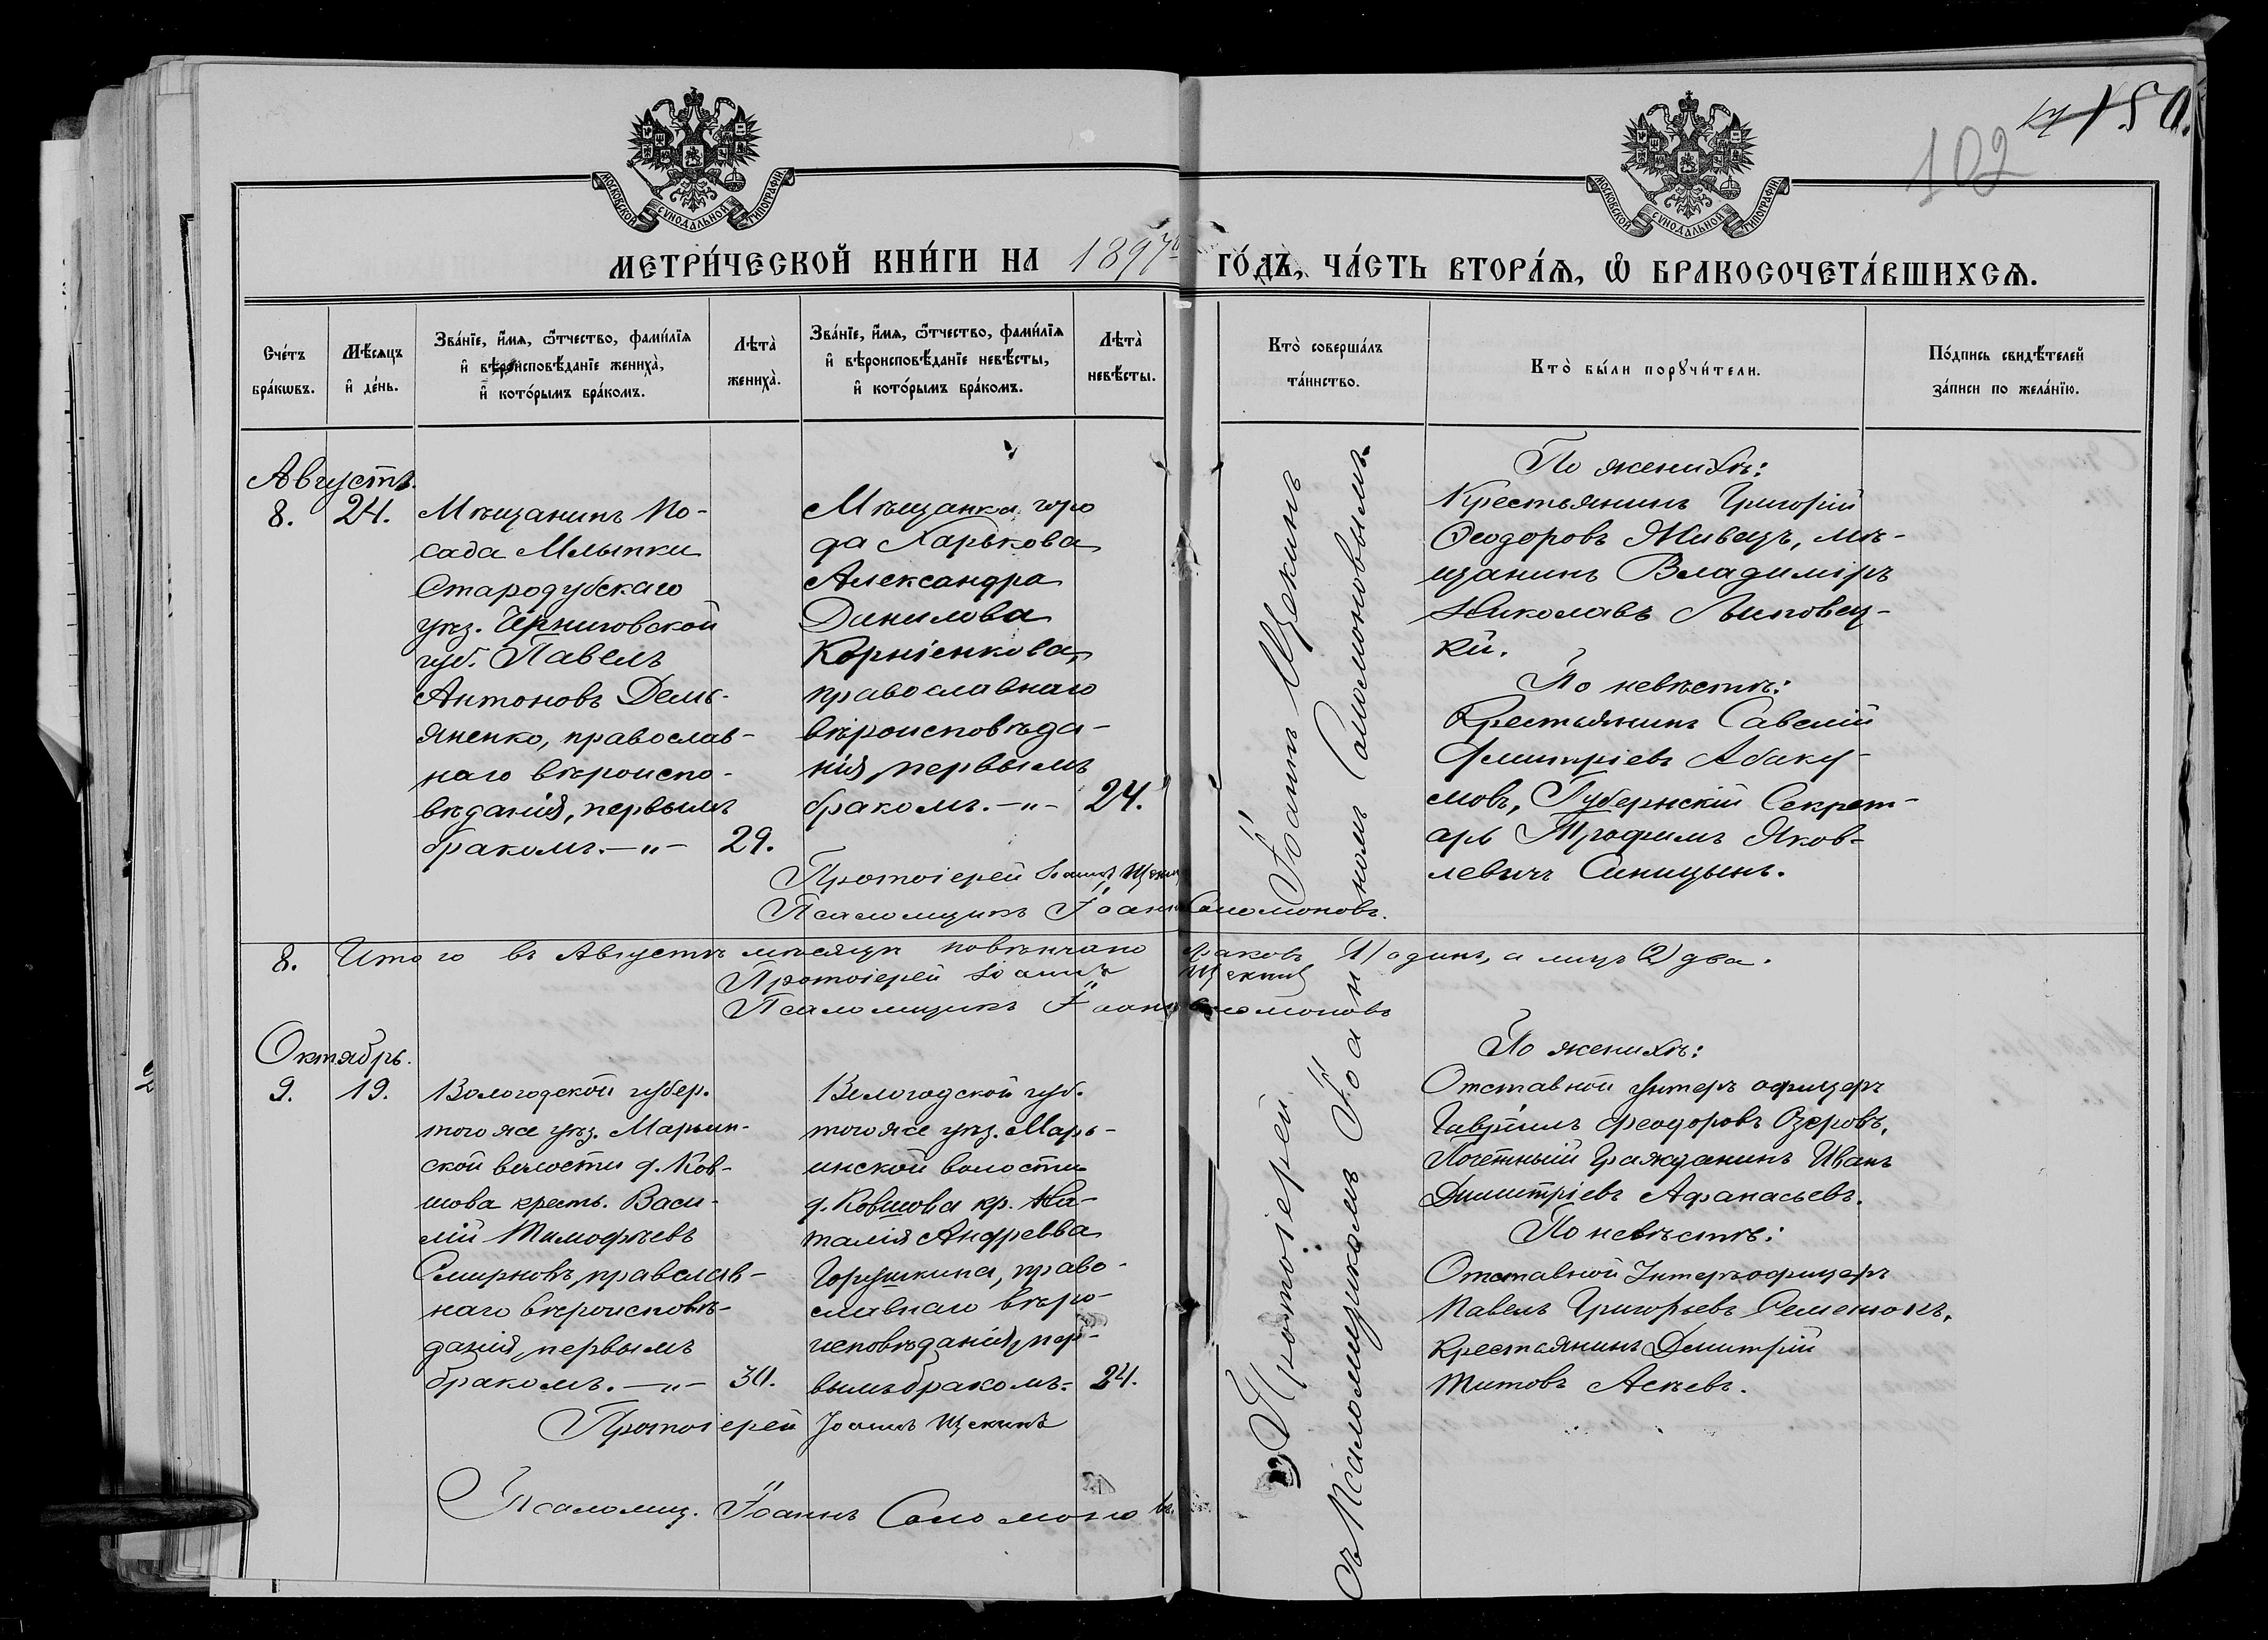 150.
102
МОСКОВСКОЙ СѴНОДАЛЬНОЙ ТИПОГРАФІИ.
МОСКОВСКОЙ СѴНОДАЛЬНОЙ ТИПОГРАФІИ.
МЕТРИ́ЧЕСКОЙ КНИ́ГИ НА 1897й ГО́ДЪ, ЧА́СТЬ ВТОРА́Ѧ, Ѡ҆ БРАКОСОЧЕТА́ВШИХСѦ.
Сче́тъ
бра́кѡвъ.
Мѣ́сѧцъ
и҆ де́нь.
Зва́нїе, и҆́мѧ, ѻ҆́тчество, фами́лїѧ
и҆ вѣроисповѣ́данїе жениха̀,
и҆ кото́рымъ бра́комъ.
Лѣта̀
жениха̀.
Зва́нїе, и҆́мѧ, ѻ҆́тчество, фами́лїѧ
и҆ вѣроисповѣ́данїе невѣ́сты,
и҆ кото́рымъ бра́комъ.
Лѣта̀
невѣ́сты.
Кто̀ соверша́лъ
та́инство.
Кто̀ бы́ли порꙋчи́тели.
По́дпись свидѣ́телей
за́писи по жела́нїю.
Августъ.
8. 24.
Мѣщанинъ По-
сада Млынки
Стародубскаго
уѣз. Черниговской
губ. Павелъ
Антоновъ Демь-
яненко, православ-
наго вѣроиспо-
вѣданія, первымъ
бракомъ. —„— 29.
Мѣщанка горо
да Харькова
Александра
Данилова
Корніенкова,
православнаго
вѣроисповѣда-
нія, первымъ
бракомъ. —„— 24.
Протоіерей Іоаннъ Щекинъ
Псаломщикъ Іоаннъ Соломоновъ.
По женихѣ:
Крестьянинъ Григорій
Ѳеодоровъ Живецъ, мѣ-
щанинъ Владиміръ
Николаевъ Липовец-
кій.
По невѣстѣ:
Крестьянинъ Савелій
Дмитріевъ Абаку-
мовъ, Губернскій Секрет-
арь Трофимъ Яков-
левичъ Синицынъ.
Протоіерей Іоаннъ Щекинъ
съ Псаломщикомъ Іоанномъ Соломоновымъ
8. Итого въ Августѣ мѣсяцѣ повѣнчано браковъ 1) одинъ, а лицъ (2) два.
Протоіерей Іоаннъ Щекинъ
Псаломщикъ Іоаннъ Соломоновъ
Октябрь.
9. 19.
Вологодской губер.
того же уѣз. Марьин-
ской волости д. Ков-
шова кресть. Васи-
лій Тимофѣевъ
Смирновъ, православ-
наго вѣроисповѣ-
данія, первымъ
бракомъ. —„— 30.
Вологодской губ.
того же уѣз. Марь-
инской волости
д. Ковшова кр. На-
талія Андреева
Горушкина, право-
славнаго вѣро-
исповѣданія, пер-
вымъ бракомъ. 24.
Протоіерей Іоаннъ Щекинъ
Псаломщ. Іоаннъ Соломоновъ.
По женихѣ:
Отставной унтеръ офицеръ
Гавріилъ Феодоровъ Озеровъ,
Почетный Гражданинъ Иванъ
Димитріевъ Афанасьевъ.
По невѣстѣ:
Отставной Унтеръ офицеръ
Павелъ Григорьевъ Семенокъ,
Крестьянинъ Димитрій
Титовъ Асѣевъ.